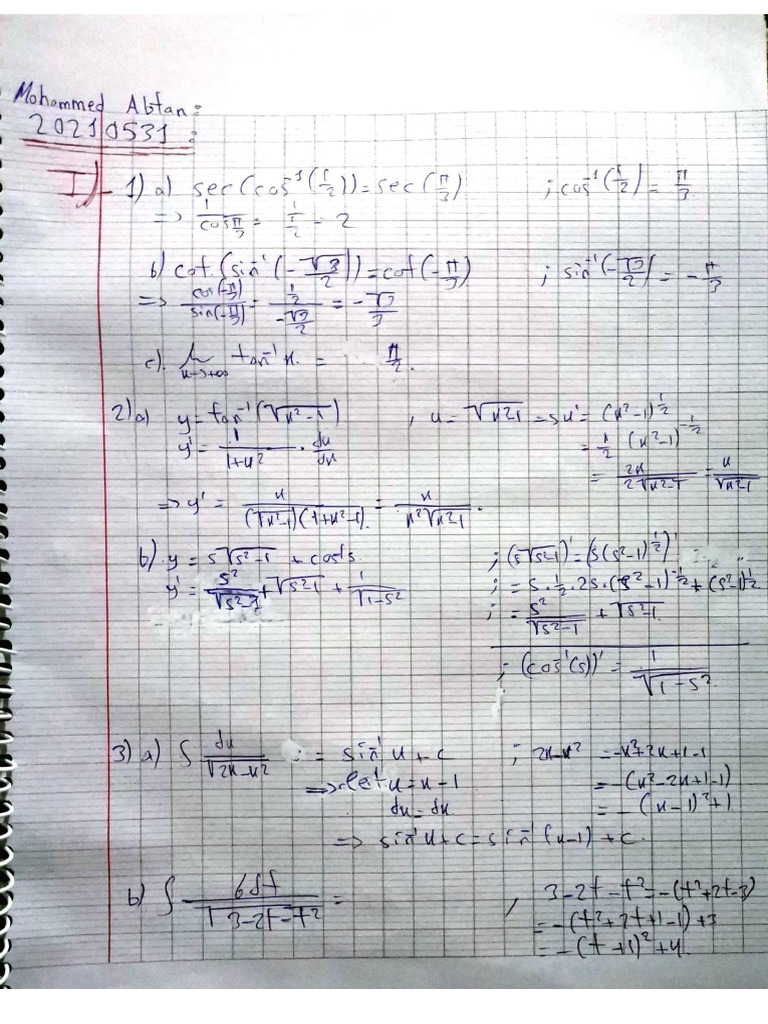 Mohammed Abtan:
20210531:
I)- 1) a) sec(cos⁻¹(1/2)) = sec(π/3) ; cos⁻¹(1/2) = π/3
=> 1/cos π/3 = 1/1/2 = 2
b) cot(sin⁻¹(-√3/2)) = cot(-π/3) ; sin⁻¹(-√3/2) = -π/3
=> cos(-π/3)/sin(-π/3) = 1/2/-√3/2 = -√3/3
c). lim x→+∞ tan⁻¹ x. = π/2.
2) a) y = tan⁻¹(√x²-1) , u = √x²-1 => u' = (x²-1)^1/2
y' = 1/1+u² . du/dx = 1/2 (x²-1)^-1/2
= 2x/2√x²-1 = x/√x²-1
=> y' = x/(√x²-1)(1+x²-1) = x/x²√x²-1.
b). y = s√s²-1 + cos⁻¹s ; (s√s²-1)' = (s(s²-1)^1/2)'
y' = s²/√s²-1 + √s²-1 + 1/√1-s² ; = s.1/2.2s.(s²-1)^-1/2 + (s²-1)^1/2
; = s²/√s²-1 + √s²-1
; (cos⁻¹(s))' = 1/√1-s²
3) a) ∫ dx/√2x-x² = sin⁻¹ u + c ; 2x-x² = -x²+2x+1-1
=> let u = x-1 = -(x²-2x+1-1)
du = dx = -(x-1)²+1
=> sin⁻¹ u + c = sin⁻¹(x-1) + c.
b) ∫ 6dt/√3-2t-t² = , 3-2t-t² = -(t²+2t-3)
= -(t²+2t+1-1)+3
= -(t+1)²+4